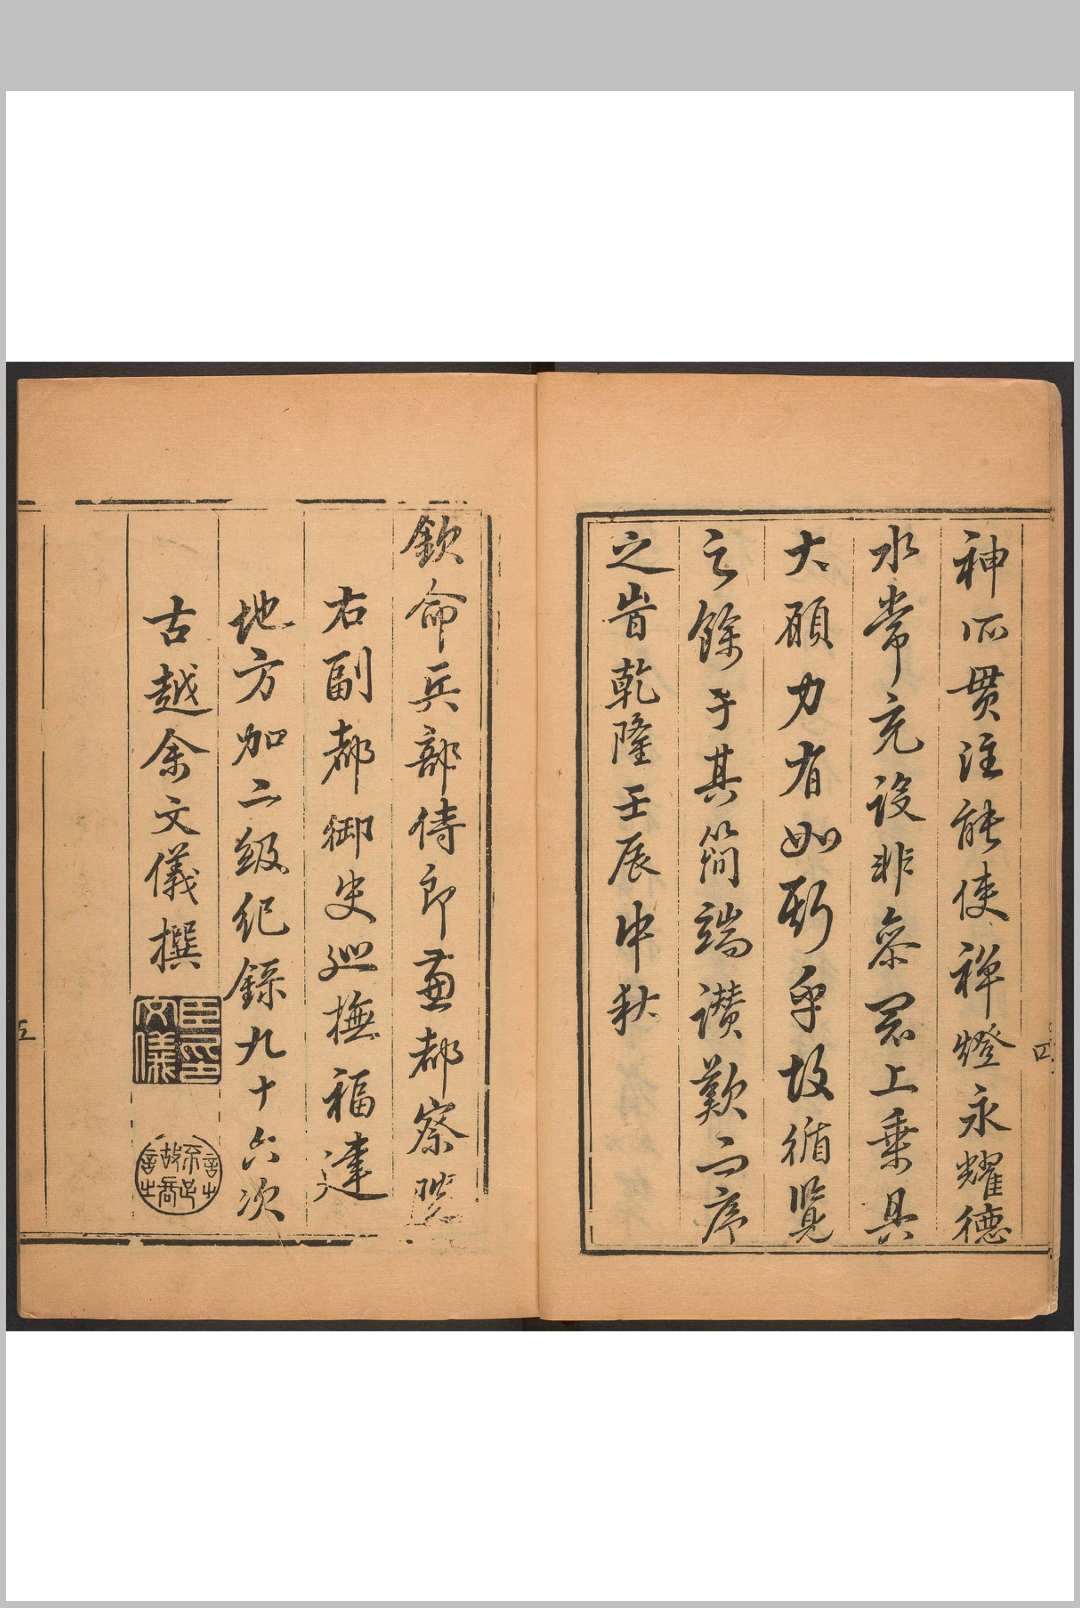 神所贯注能使禅燈永耀德
水常充设非叅冣上乗具
大願力有如斯乎故循覧
之餘于其簡端讃歎而序
之旹乾隆壬辰中秋
四
欽命兵部侍郎兼都察院
右副都御史巡撫福建
地方加二級纪録九十六次
古越余文儀撰
臣印文儀
五